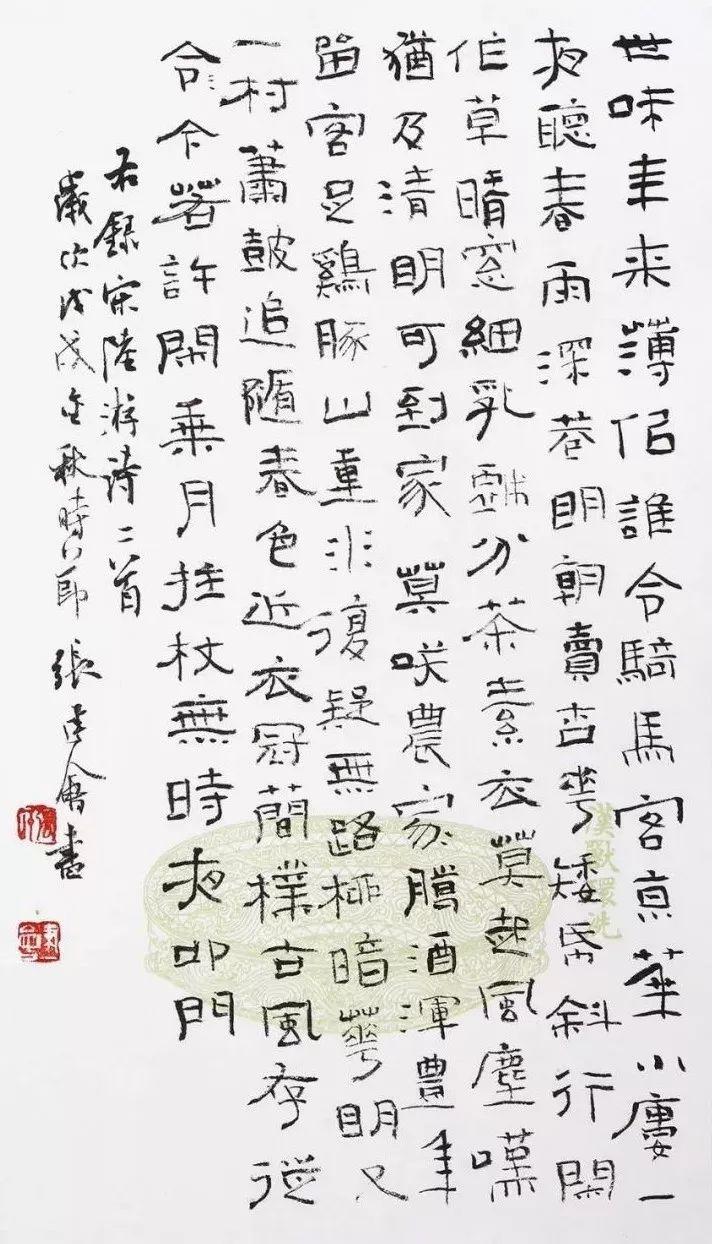 世味年来薄佀誰令騎馬客京華小廔一
夜聽春雨深巷明朝賣杏華矮帋斜行閑
作草晴窓細乳戲分茶素衣莫起風塵嘆
猶及清明可到家 莫咲農家臘酒渾豊年
留客足鷄豚山重水復疑無路栁暗華明又
一村蕭鼓追隨春色近衣冠蕳樸古風存從
今今若許閑乗月拄杖無時夜叩門
右録宋陸游詩二首
歲次戊戌金秋時節張建會書
漢獸環洗